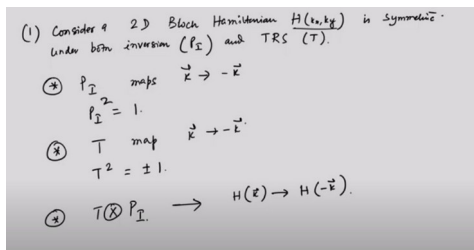 (1) Consider a 2D Bloch Hamiltonian H(kx,ky) is symmetric.
under both inversion (P_I) and TRS (T).
⊛ P_I maps k⃗ → -k⃗
P_I² = 1.
⊛ T map k⃗ → -k⃗.
T² = ±1.
⊛ T⊗P_I. → H(k⃗) → H(-k⃗).